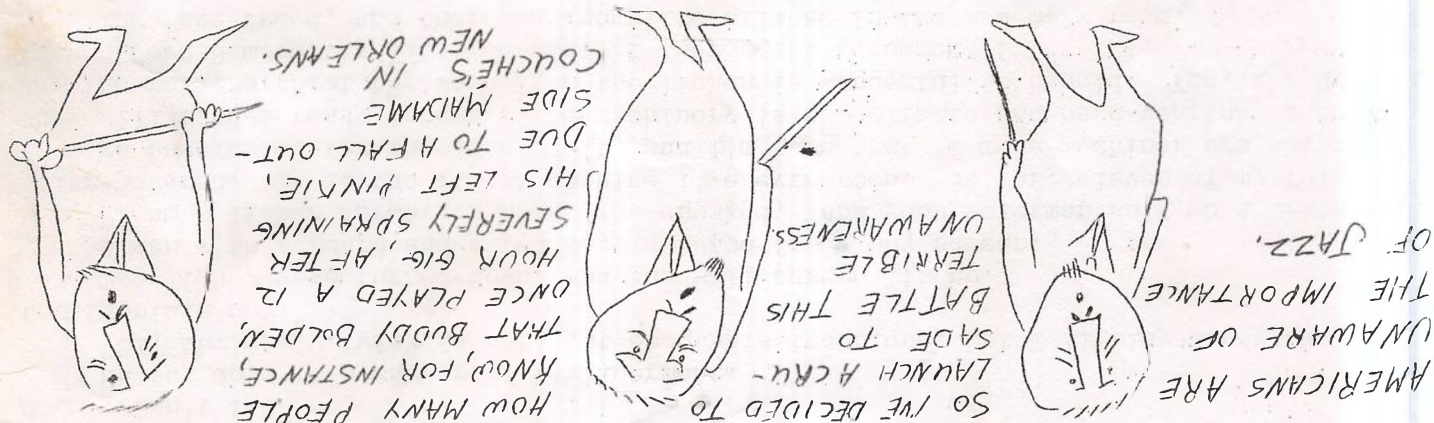 AMERICANS ARE
UNAWARE OF
THE IMPORTANCE
OF JAZZ.
SO I'VE DECIDED TO
LAUNCH A CRU-
SADE TO
BATTLE THIS
TERRIBLE
UNAWARENESS.
HOW MANY PEOPLE
KNOW, FOR INSTANCE,
THAT BUDDY BOLDEN,
ONCE PLAYED A 12
HOUR GIG AFTER
SEVERELY SPRAINING
HIS LEFT PINKIE,
DUE TO A FALL OUT-
SIDE MADAME
COUCHE'S IN
NEW ORLEANS.